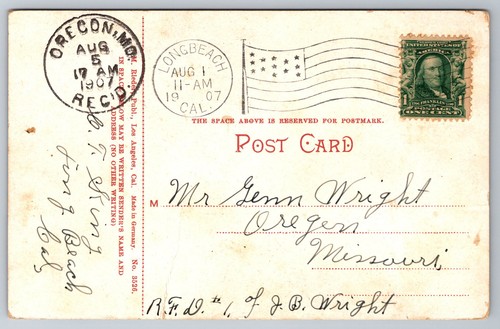 OREGON, MO.
AUG
5
17 AM
1907
REC'D.
LONGBEACH
AUG 1
11-AM
19 07
CAL.
UNITED STATES OF AMERICA
FRANKLIN
1 1
POSTAGE
ONE CENT
THE SPACE ABOVE IS RESERVED FOR POSTMARK.
POST CARD
M. Rieder, Publ., Los Angeles, Cal. Made in Germany. No. 3526.
IN SPACE BELOW MAY BE WRITTEN SENDER'S NAME AND
ADDRESS (NO OTHER WRITING)
T. King
Long Beach
Cal,
M
Mr Glenn Wright
Oregon
Missouri,
R.F.D. #1, of J.B. Wright